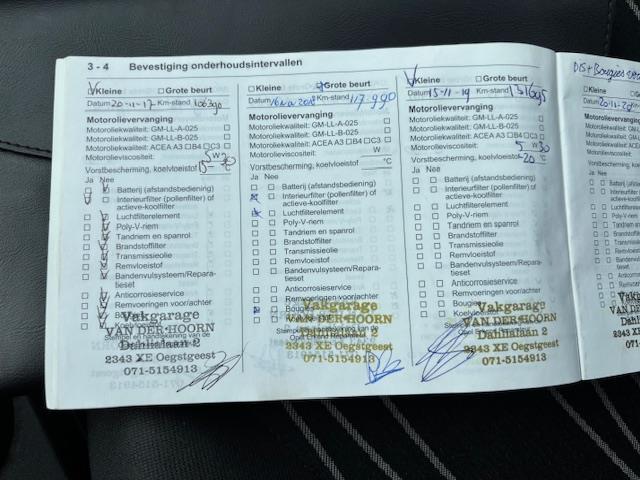 3 - 4 Bevestiging onderhoudsintervallen
Kleine Grote beurt
Datum 20-11-17 Km-stand
Motorolievervanging
Motoroliekwaliteit: GM-LL-A-025
Motoroliekwaliteit: GM-LL-B-025
Motoroliekwaliteit: ACEA A3 B4 C3
Motorolieviscositeit: W
Vorstbescherming, koelvloeistof °C
Ja Nee
Batterij (afstandsbediening)
Interieurfilter (pollenfilter) of
actieve-koolfilter
Luchtfilterelement
Poly-V-riem
Tandriem en spanrol
Brandstoffilter
Transmissieolie
Remvloeistof
Bandenvulsysteem/Repara-
tieset
Anticorrosieservice
Remvoeringen voor/achter
Koelvloeistof
Vakgarage
VAN DER HOORN
Dahlialaan 2
2343 XE Oegstgeest
071-5154913
Kleine Grote beurt
Datum Km-stand 117.990
Motorolievervanging
Motoroliekwaliteit: GM-LL-A-025
Motoroliekwaliteit: GM-LL-B-025
Motoroliekwaliteit: ACEA A3 B4 C3
Motorolieviscositeit: W
Vorstbescherming, koelvloeistof °C
Ja Nee
Batterij (afstandsbediening)
Interieurfilter (pollenfilter) of
actieve-koolfilter
Luchtfilterelement
Poly-V-riem
Tandriem en spanrol
Brandstoffilter
Transmissieolie
Remvloeistof
Bandenvulsysteem/Repara-
tieset
Anticorrosieservice
Remvoeringen voor/achter
Bougies
Vakgarage
VAN DER HOORN
Dahlialaan 2
2343 XE Oegstgeest
071-5154913
Kleine Grote beurt
Datum 15-11-19 Km-stand
Motorolievervanging
Motoroliekwaliteit: GM-LL-A-025
Motoroliekwaliteit: GM-LL-B-025
Motoroliekwaliteit: ACEA A3 B4 C3
Motorolieviscositeit: 5 W 30
Vorstbescherming, koelvloeistof -20 °C
Ja Nee
Batterij (afstandsbediening)
Interieurfilter (pollenfilter) of
actieve-koolfilter
Luchtfilterelement
Poly-V-riem
Tandriem en spanrol
Brandstoffilter
Transmissieolie
Remvloeistof
Bandenvulsysteem/Repara-
tieset
Anticorrosieservice
Remvoeringen voor/achter
Bougies
Koelvloeistof
Vakgarage
VAN DER HOORN
Dahlialaan 2
2343 XE Oegstgeest
071-5154913
Dis + Bougies
Kleine
Datum
Motorolievervanging
Motoroliekwaliteit
Motoroliekwaliteit
Motoroliekwaliteit
Motorolieviscositeit
Vorstbescherming
Ja Nee